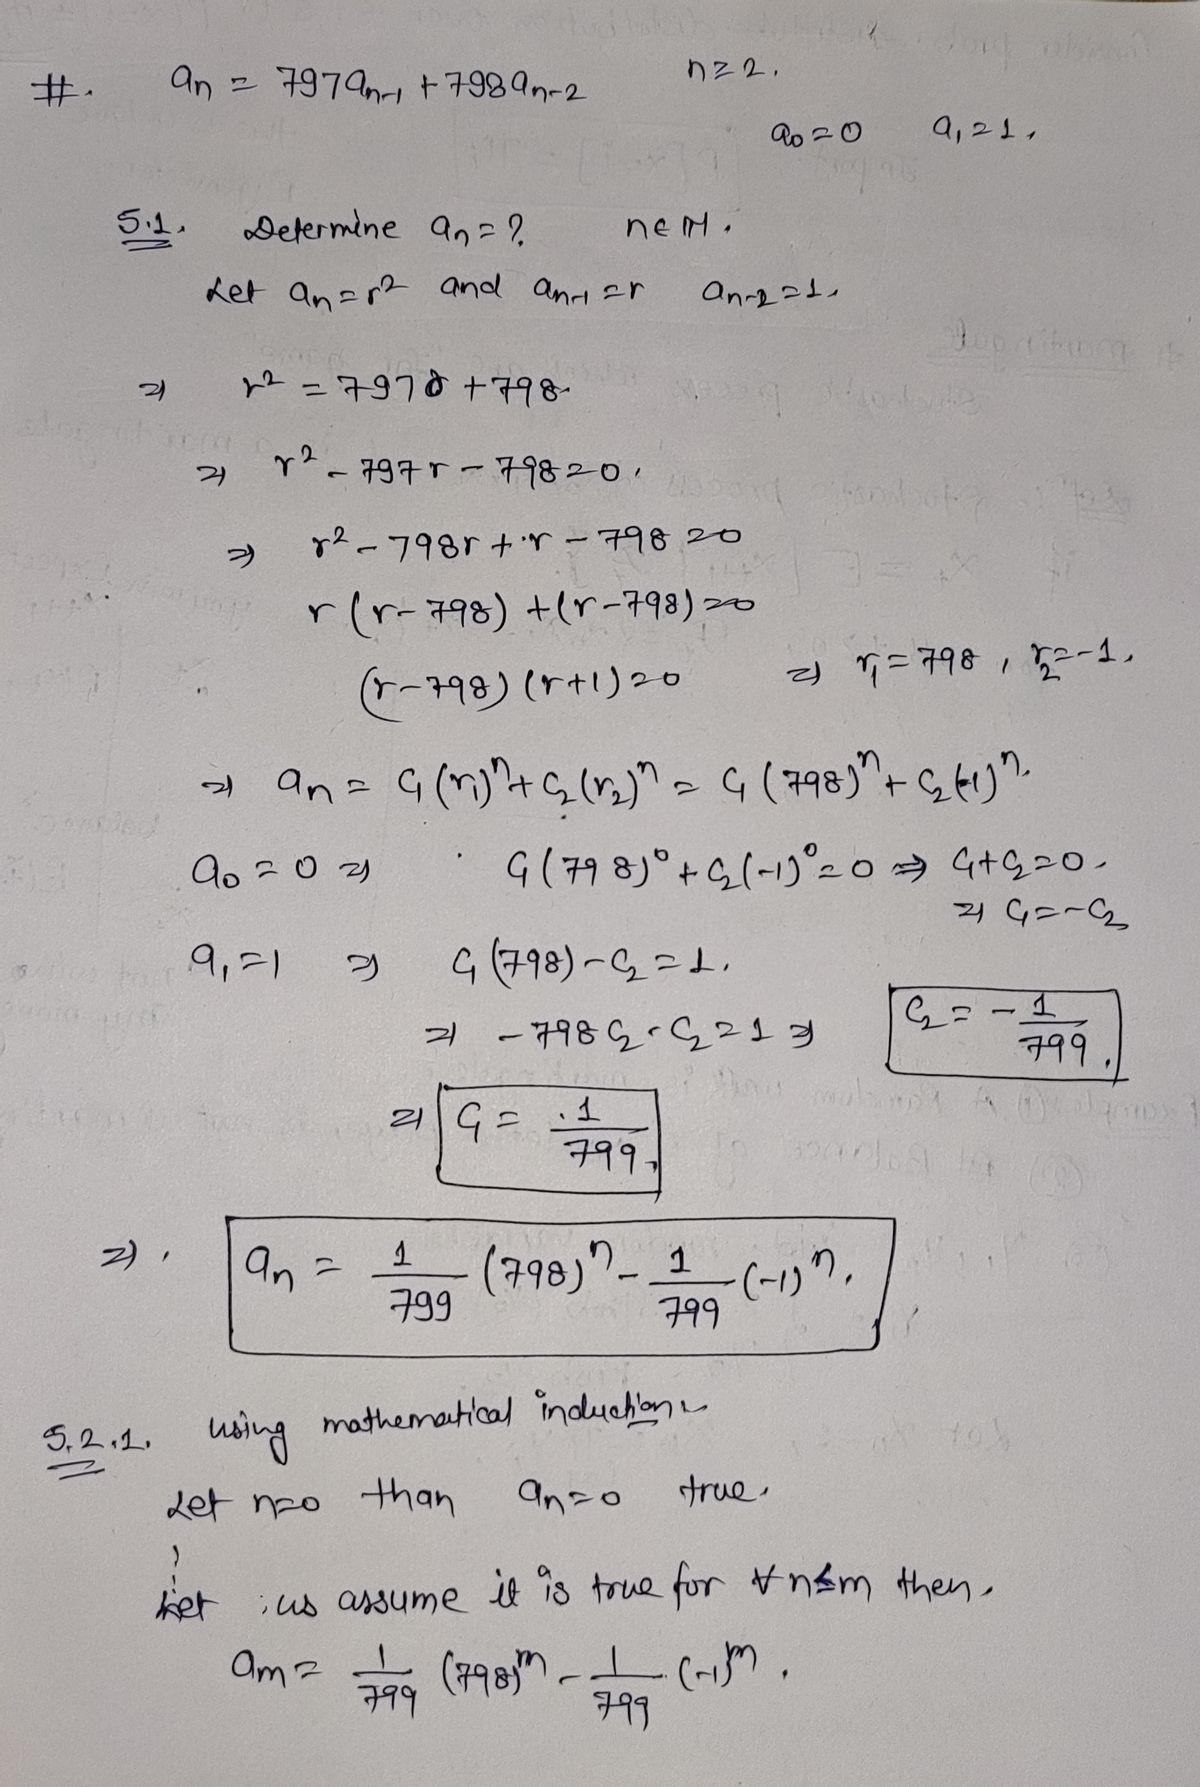 #. aₙ = 797aₙ₋₁ + 798aₙ₋₂ n≥2.
a₀ = 0 a₁ = 1.
5.1. Determine aₙ = ? n∈ℕ.
Let aₙ = r² and aₙ₋₁ = r aₙ₋₂ = 1.
⇒ r² = 797r + 798.
⇒ r² - 797r - 798 = 0.
⇒ r² - 798r + r - 798 = 0
r(r - 798) + (r - 798) = 0
(r - 798)(r + 1) = 0 ⇒ r₁ = 798, r₂ = -1.
⇒ aₙ = C₁(r₁)ⁿ + C₂(r₂)ⁿ = C₁(798)ⁿ + C₂(-1)ⁿ.
a₀ = 0 ⇒ C₁(798)⁰ + C₂(-1)⁰ = 0 ⇒ C₁ + C₂ = 0.
⇒ C₁ = -C₂
a₁ = 1 ⇒ C₁(798) - C₂ = 1.
⇒ -798C₂ - C₂ = 1 ⇒ C₂ = -1/799.
⇒ C₁ = 1/799.
⇒. aₙ = 1/799 (798)ⁿ - 1/799 (-1)ⁿ.
5.2.1. Using mathematical induction
Let n=0 than aₙ = 0 true.
Let us assume it is true for ∀ n≤m then.
aₘ = 1/799 (798)ᵐ - 1/799 (-1)ᵐ.